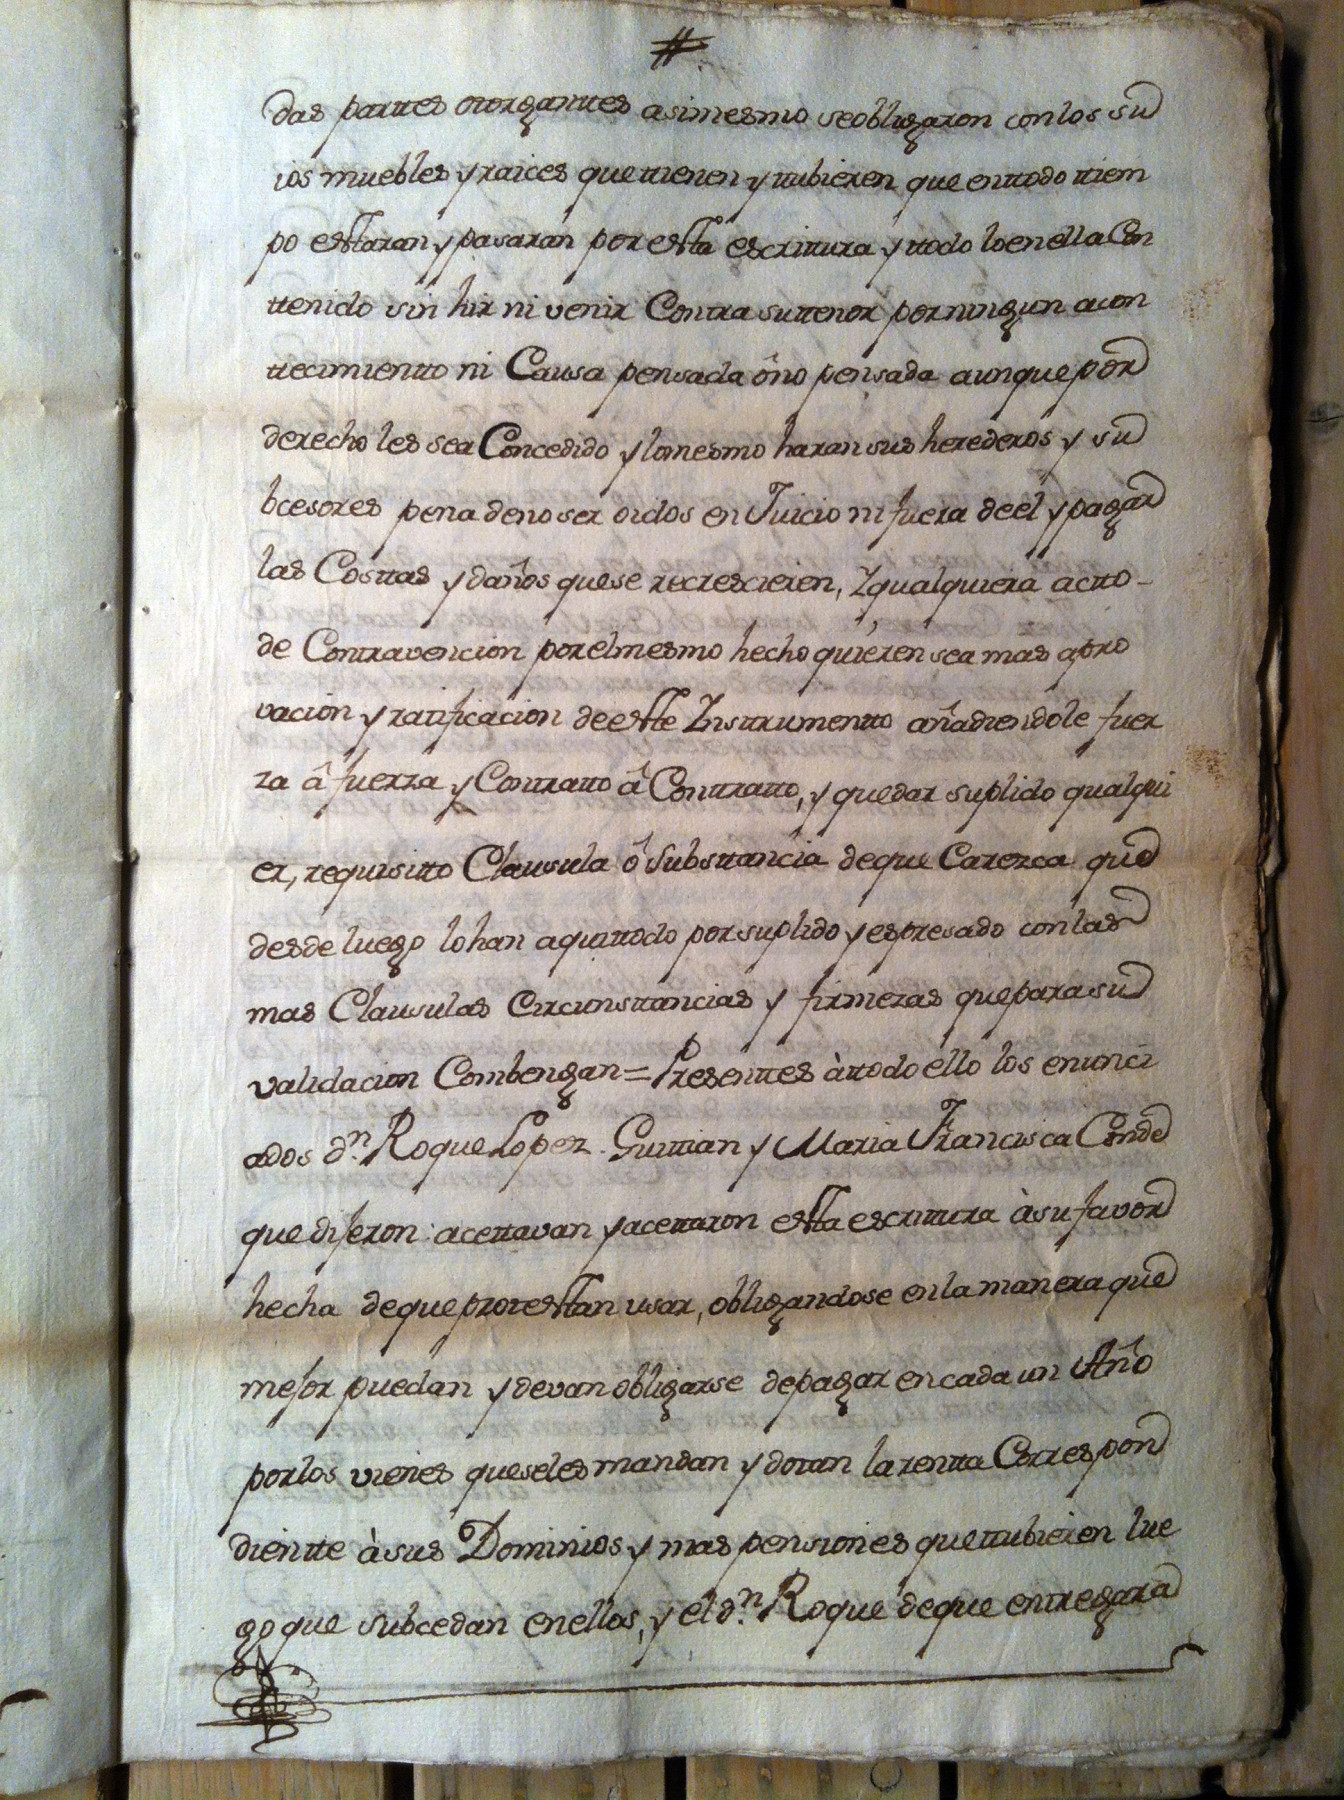 #
das parttes otorganttes asimesmo se obligaron con los su
ios muebles y raices que ttienen y ttubieren que en ttodo ttiem
po esttaran y pasaran por estta escrittura y ttodo lo en ella Con
ttenido sin hir ni venir Contra su ttenor por ningun acon
ttecimientto ni Causa pensada ô no pensada aunque por
derecho les sea Concedido y lo mesmo haran sus herederos y su
bcesores pena de no ser oidos en Juicio ni fuera de el y pagar
las Costtas y daños que se recrescieren, Y qualquiera actto
de Contravencion por el mesmo hecho quieren sea mas apro
vacion y ratificacion de estte Ynstrumentto añadiendole fuer
za â fuerza y Contratto â Conttratto, y quedar suplido qualqui
er, requisitto Clausula ô Substtancia de que Carezca que
desde luego lo han aqui ttodo por suplido y espresado con las
mas Clausulas Circunsttancias y firmezas que para su
validacion Combengan = Presenttes à ttodo ello los enunci
ados dn. Roque Lopez Guittian y Maria Francisca Conde
que diseron acettavan y acettaron estta escrittura à su favor
hecha de que protesttan usar, obligandose en la manera que
mesor puedan y devan obligarse de pagar en cada un Año
por los vienes que se les mandan y dotan la rentta Correspon
dientte à sus Dominios y mas pensiones que ttubieren lue
go que subcedan en ellos, y el dn. Roque de que entregara